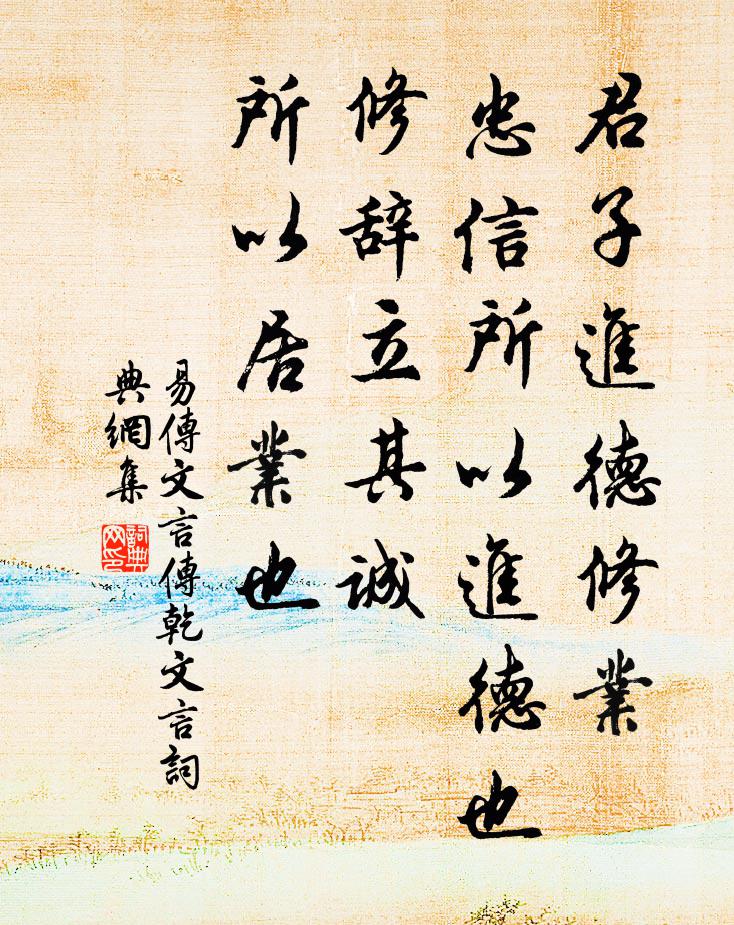 君子進德修業
忠信所以進德也
修辞立其誠
所以居業也
易傳文言傳乾文言詞
典網集
詞典
网印